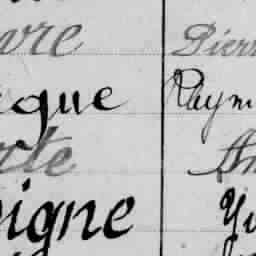 vre Pierr
que Raym
rte An
igne Yv